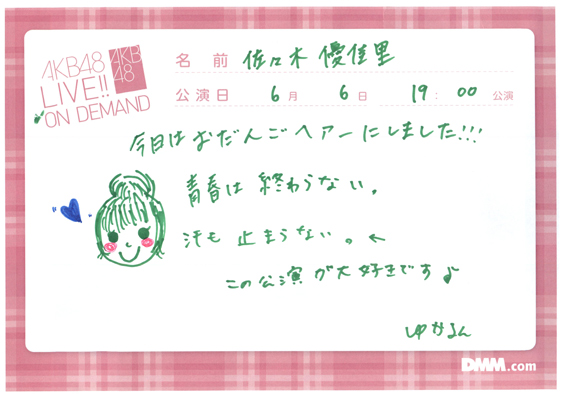 AKB48
LIVE!!
ON DEMAND
AKB
48
名前 佐々木優佳里
公演日 6月 6日 19:00公演
今日はおだんごヘアーにしました!!!
青春は終わらない。
汗も止まらない。←
この公演が大好きです♪
ゆかるん
DMM.com